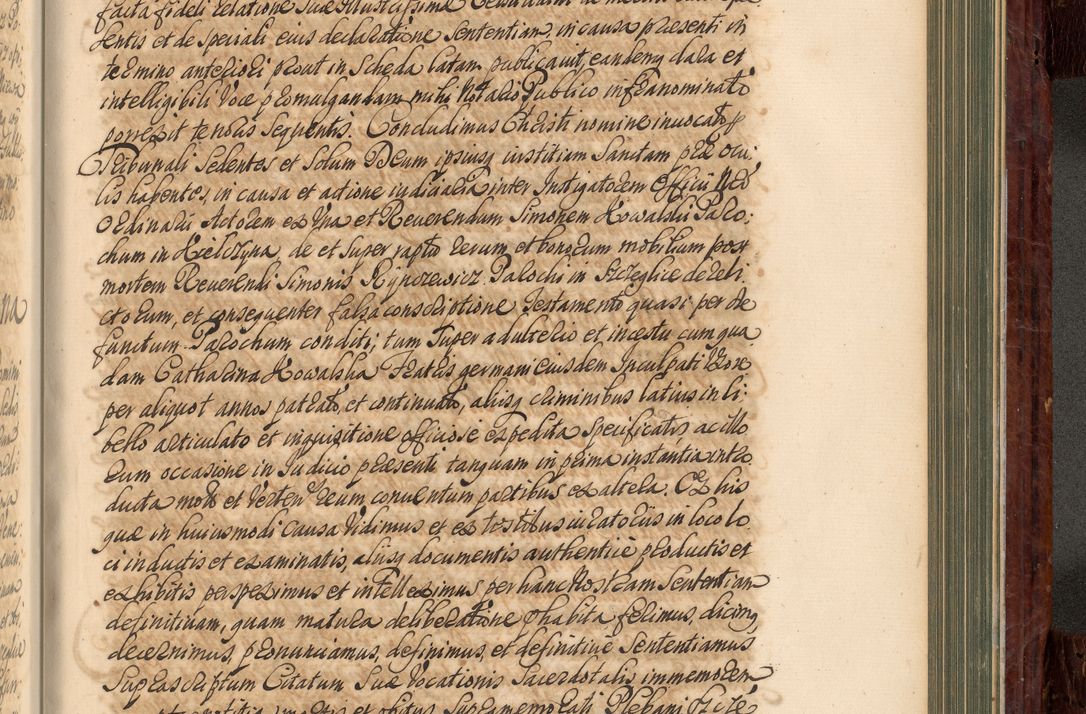 facta fideli relatione suæ Illustrissimæ
sentis et de speciali eius declaratione sententiam in causa præsenti in
termino anteriori prout in scheda latam publicavit, eandemq clara et
intelligibili voce promulgandam mihi Notario Publico infranominato
porrexit tenoris sequentis. Concludimus Christi nomine invocato p
Tribunali sedentes et solum Deum ipsiusq iustitiam Sanctam præ ocu:
lis habentes, in causa et actione iudiciaria inter Instigatorem Officii Nri
Ordinarii Actorem ex vna et Reuerendum Simonem Kowalski Paro:
chum in Kielczyna de et super rapto rerum et bonorum mobilium post
mortem Reuerendi Simonis Rynczewicz Parochi in Szczeglice dereli
ctorum, et consequenter falsa conscriptione Testamento quasi per de
functum Parochum conditi; tam super adulterio et incestu cum qua
dam Catharina Kowalska Fratris germani eiusdem Inculpati Vxore
per aliquot annos patrato, et continuato, aliisq criminibus latius in li:
bello articulato et inquisitione officiose expedita specificatis, ac illo
rum occasione in Iudicio præsenti tanquam in prima instantia intro
ducta mota et verten reum conuentum partibus ex altera. Ex his
quæ in huiusmodi causa vidimus et ex testibus iuratoriis in loco lo
ci inductis et examinatis, aliisq documentis authentice productis et
exhibitis perspeximus et intelleximus, per hanc Nostram Sententiam
definitiuam, quam matura deliberatione præhabita ferimus, dicimq
decernimus, pronunciamus, definimus, et definitive sententiamus
supra scriptum Citatum suæ vocationis sacerdotalis immemorem
et obitus supramemorati Plebani Szcze